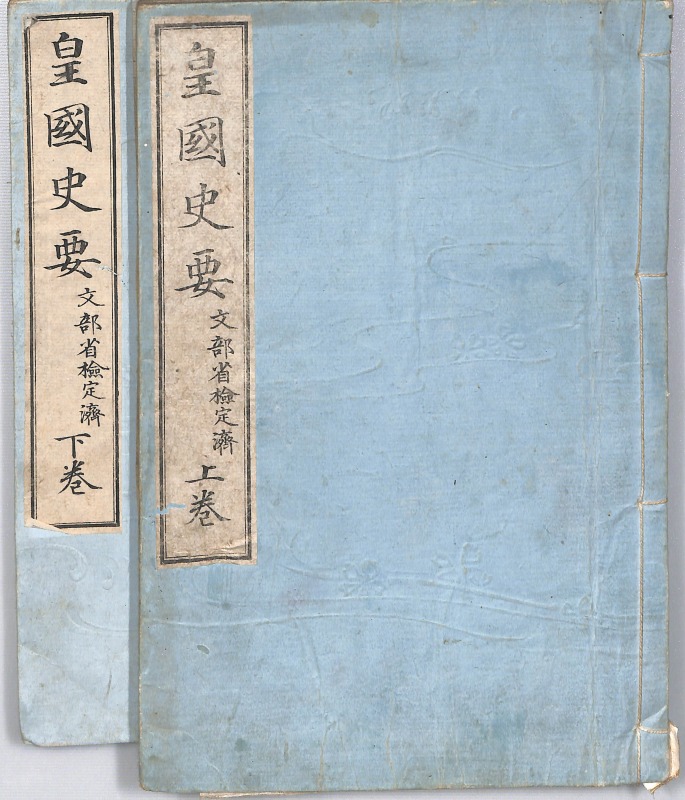 皇國史要
文部省檢定濟
上巻
皇國史要
文部省檢定濟
下巻